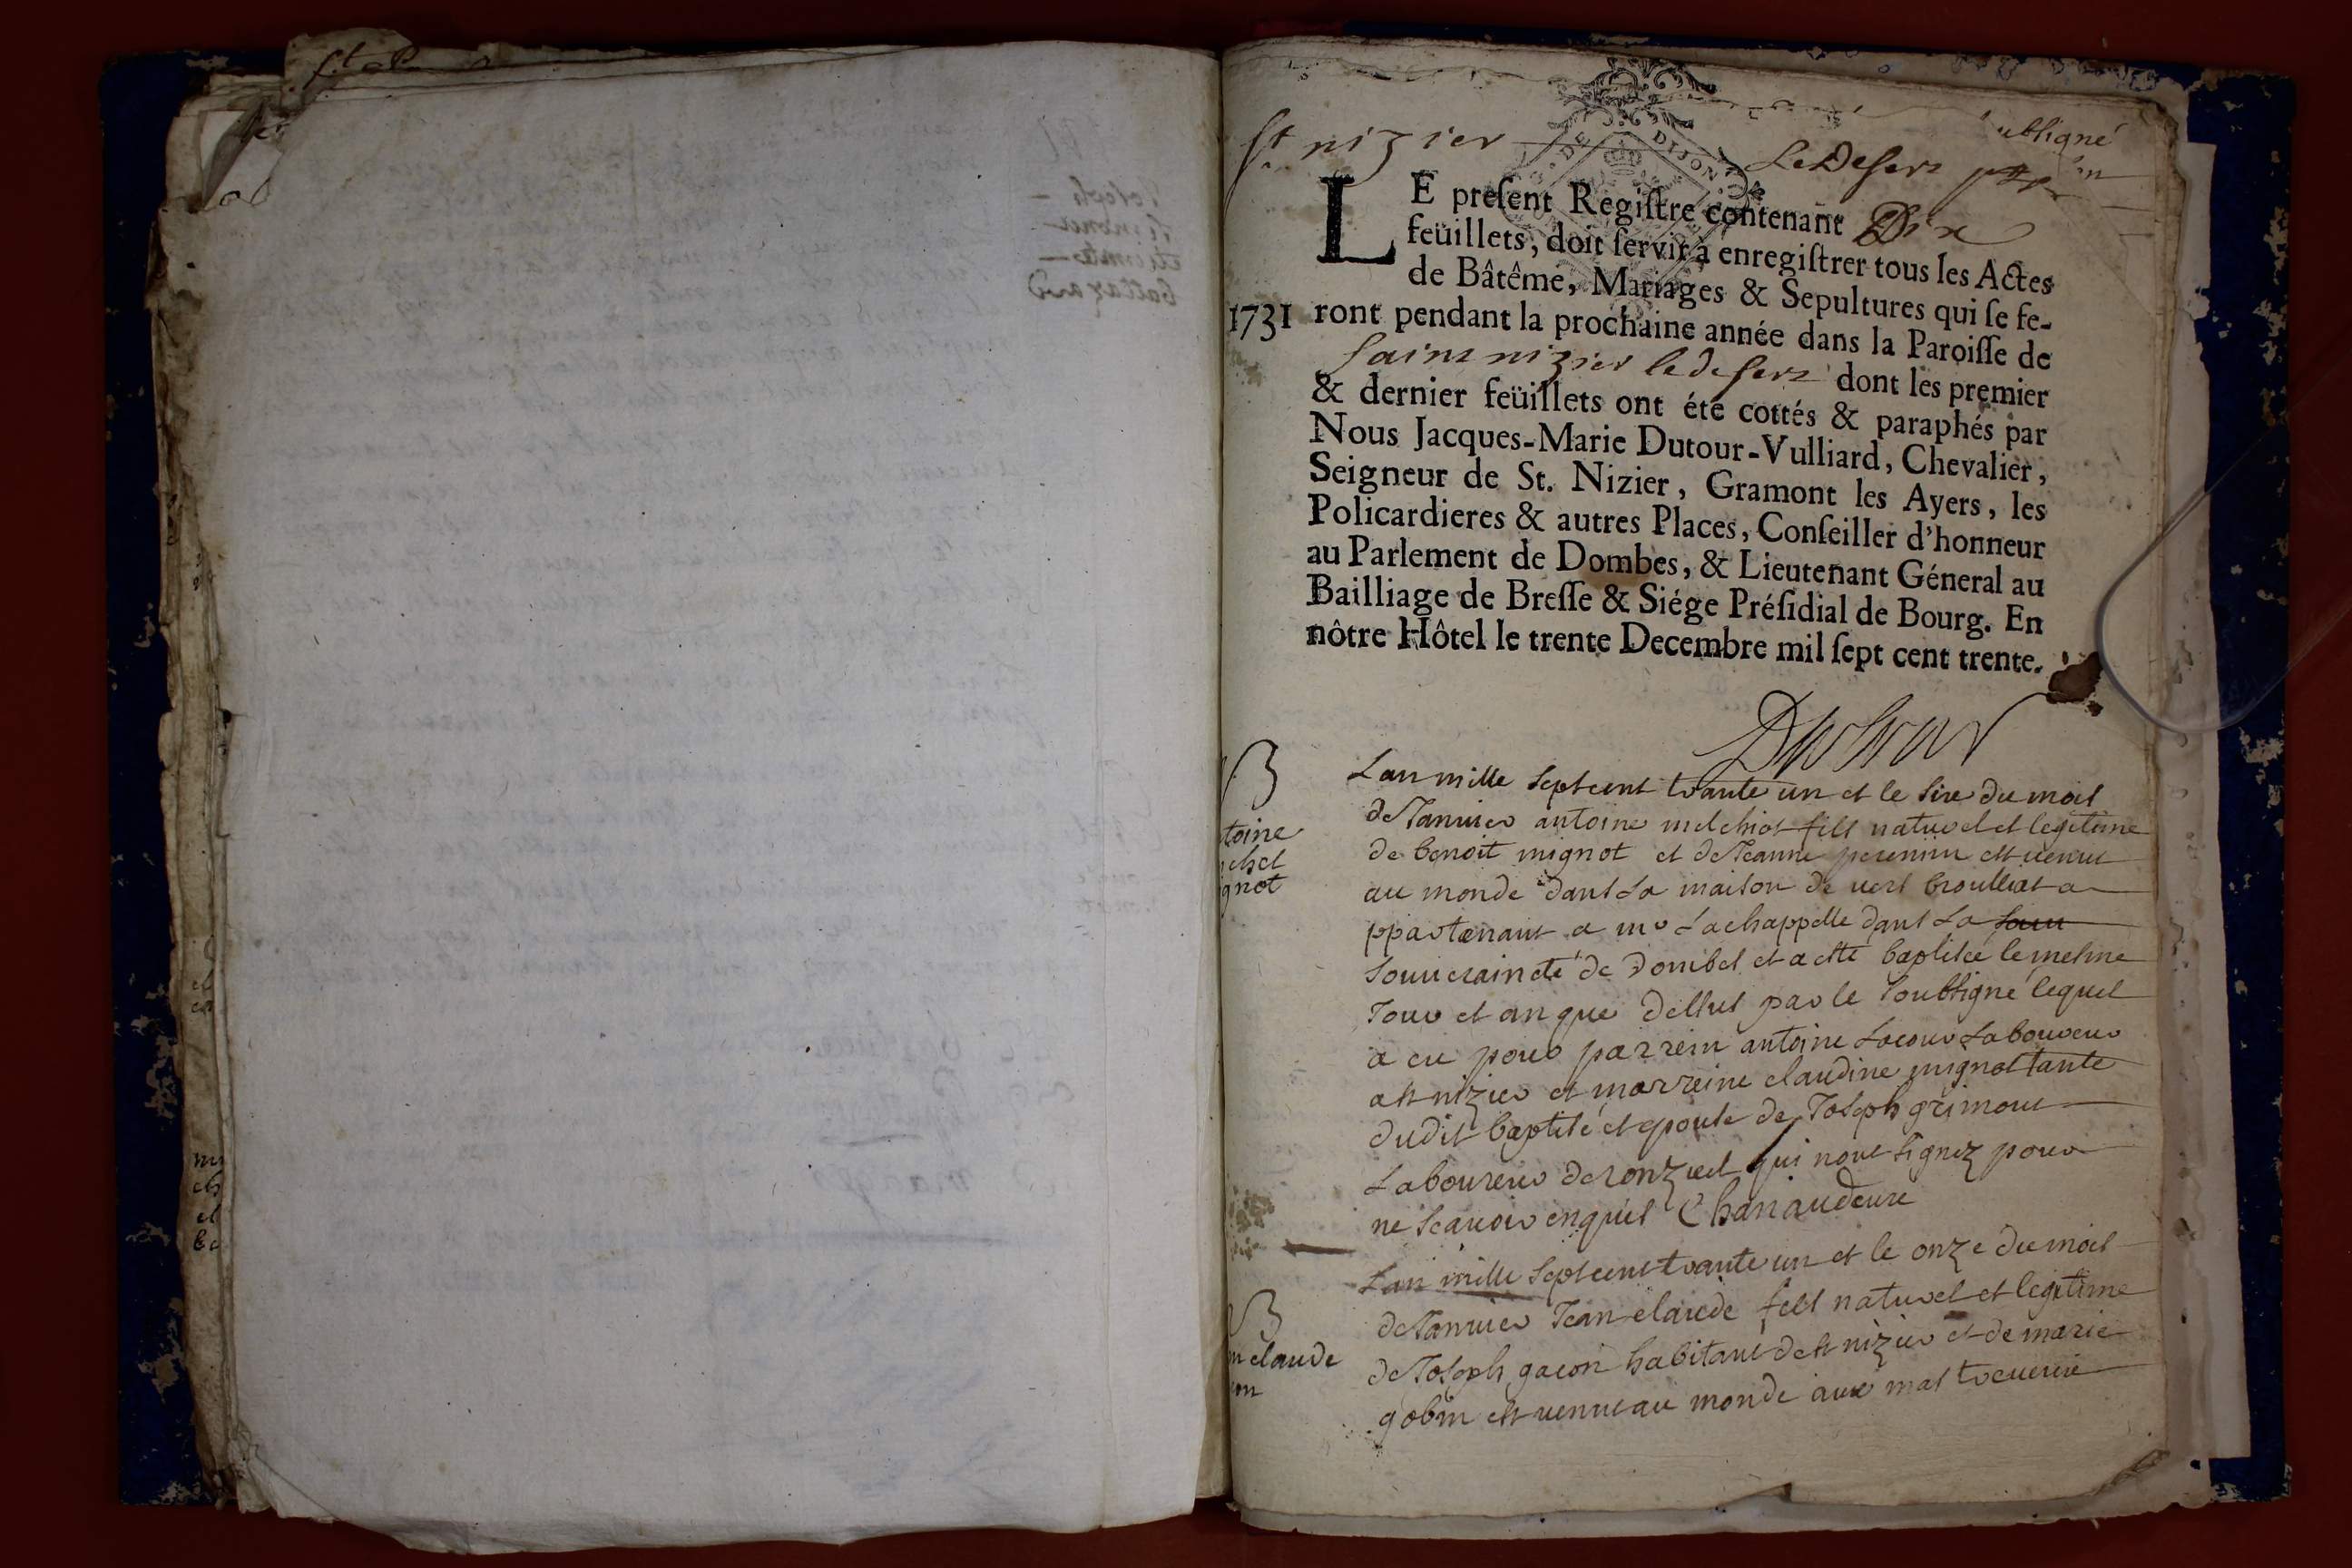 St nizier
Le Desert
ubsigné
GEN. DE DIJON
LE present Registre contenant Dix
feüillets, doit servir à enregistrer tous les Actes
de Bâtême, Mariages & Sepultures qui se fe-
1731 ront pendant la prochaine année dans la Paroisse de
Saint nizier le desert dont les premier
& dernier feüillets ont été cottés & paraphés par
Nous Jacques-Marie Dutour-Vulliard, Chevalier,
Seigneur de St. Nizier, Gramont les Ayers, les
Policardieres & autres Places, Conseiller d'honneur
au Parlement de Dombes, & Lieutenant Géneral au
Bailliage de Bresse & Siége Présidial de Bourg. En
nôtre Hôtel le trente Decembre mil sept cent trente.
Dutour
B
toine
chel
gnot
Lan mille sept cent trante un et le sixe du mois
de Janvier antoine melchiot fils naturel et legitime
de benoit mignot et de Jeanne perenin est venut
au monde dans La maison de vers broullat a
ppartenant a mr Lachappelle dans La souv
souveraineté de dombes et a esté baptisée le mesme
Jour et an que dessus par le soubsigné lequel
a eu pour parrein antoine Lacour Laboureur
a st nizier et marreine claudine mignot tante
dudit baptisé et epouse de Joseph grimout
Laboureur de ronzuel qui nont signez pour
ne scavoir enquis Chanaudeure
B
n claude
on
Lan mille sept cent trante un et le onze du mois
de Janvier Jean claude fils naturel et legitime
de Joseph gacon habitant de st nizier et de marie
gobin est venut au monde aux mas